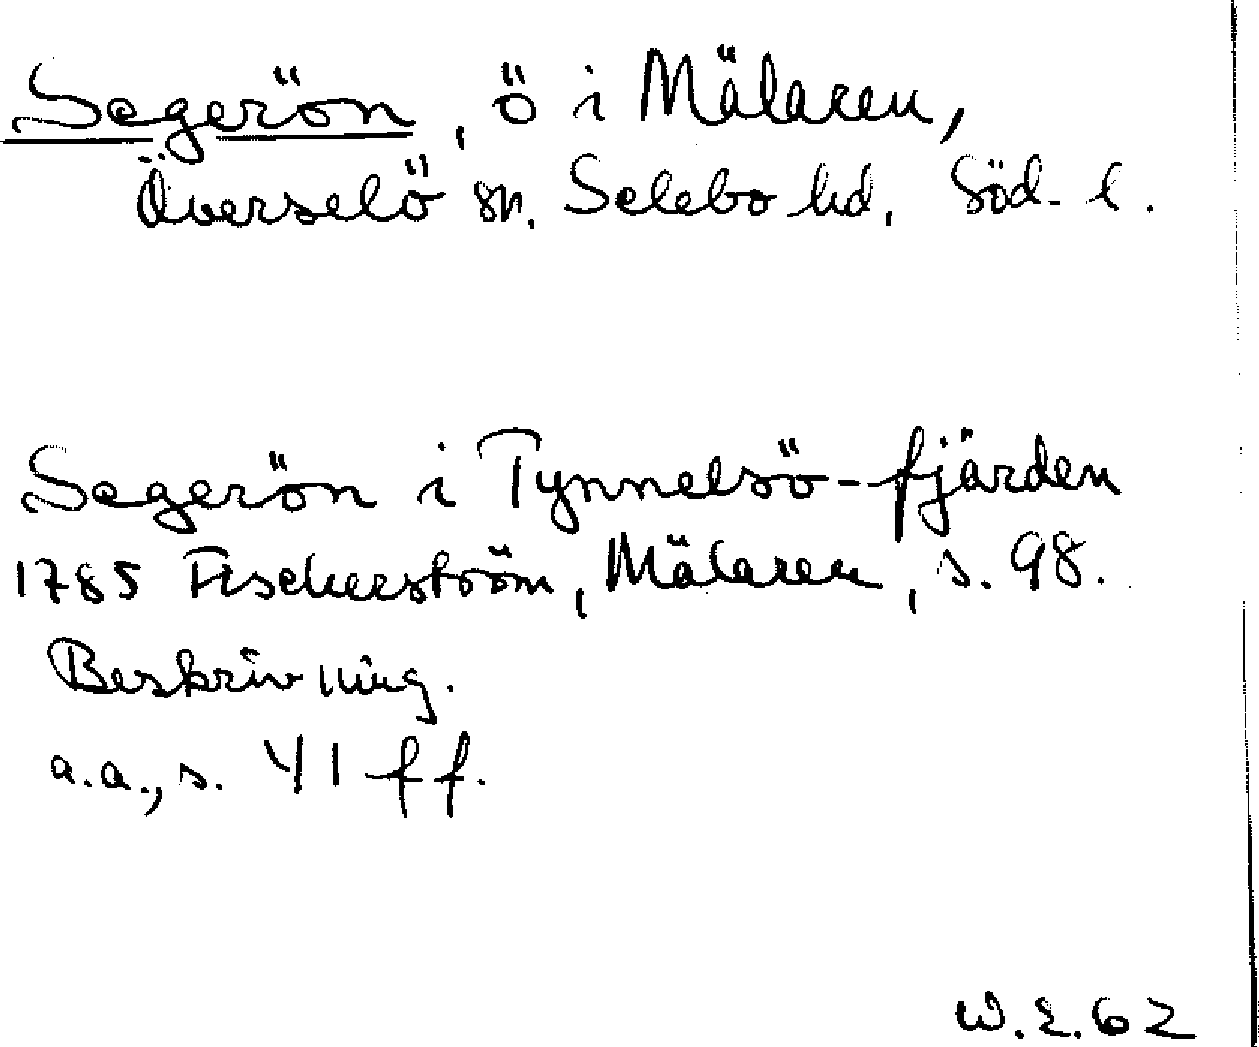 Segerön, ö i Mälaren,
Överselö sn. Selebo hd, Söd. l.
Segerön i Tynnelsö-fjärden
1785 Fischerström, Mälaren, s. 98.
Beskrivning.
a.a., s. 41 ff.
W.E. 62